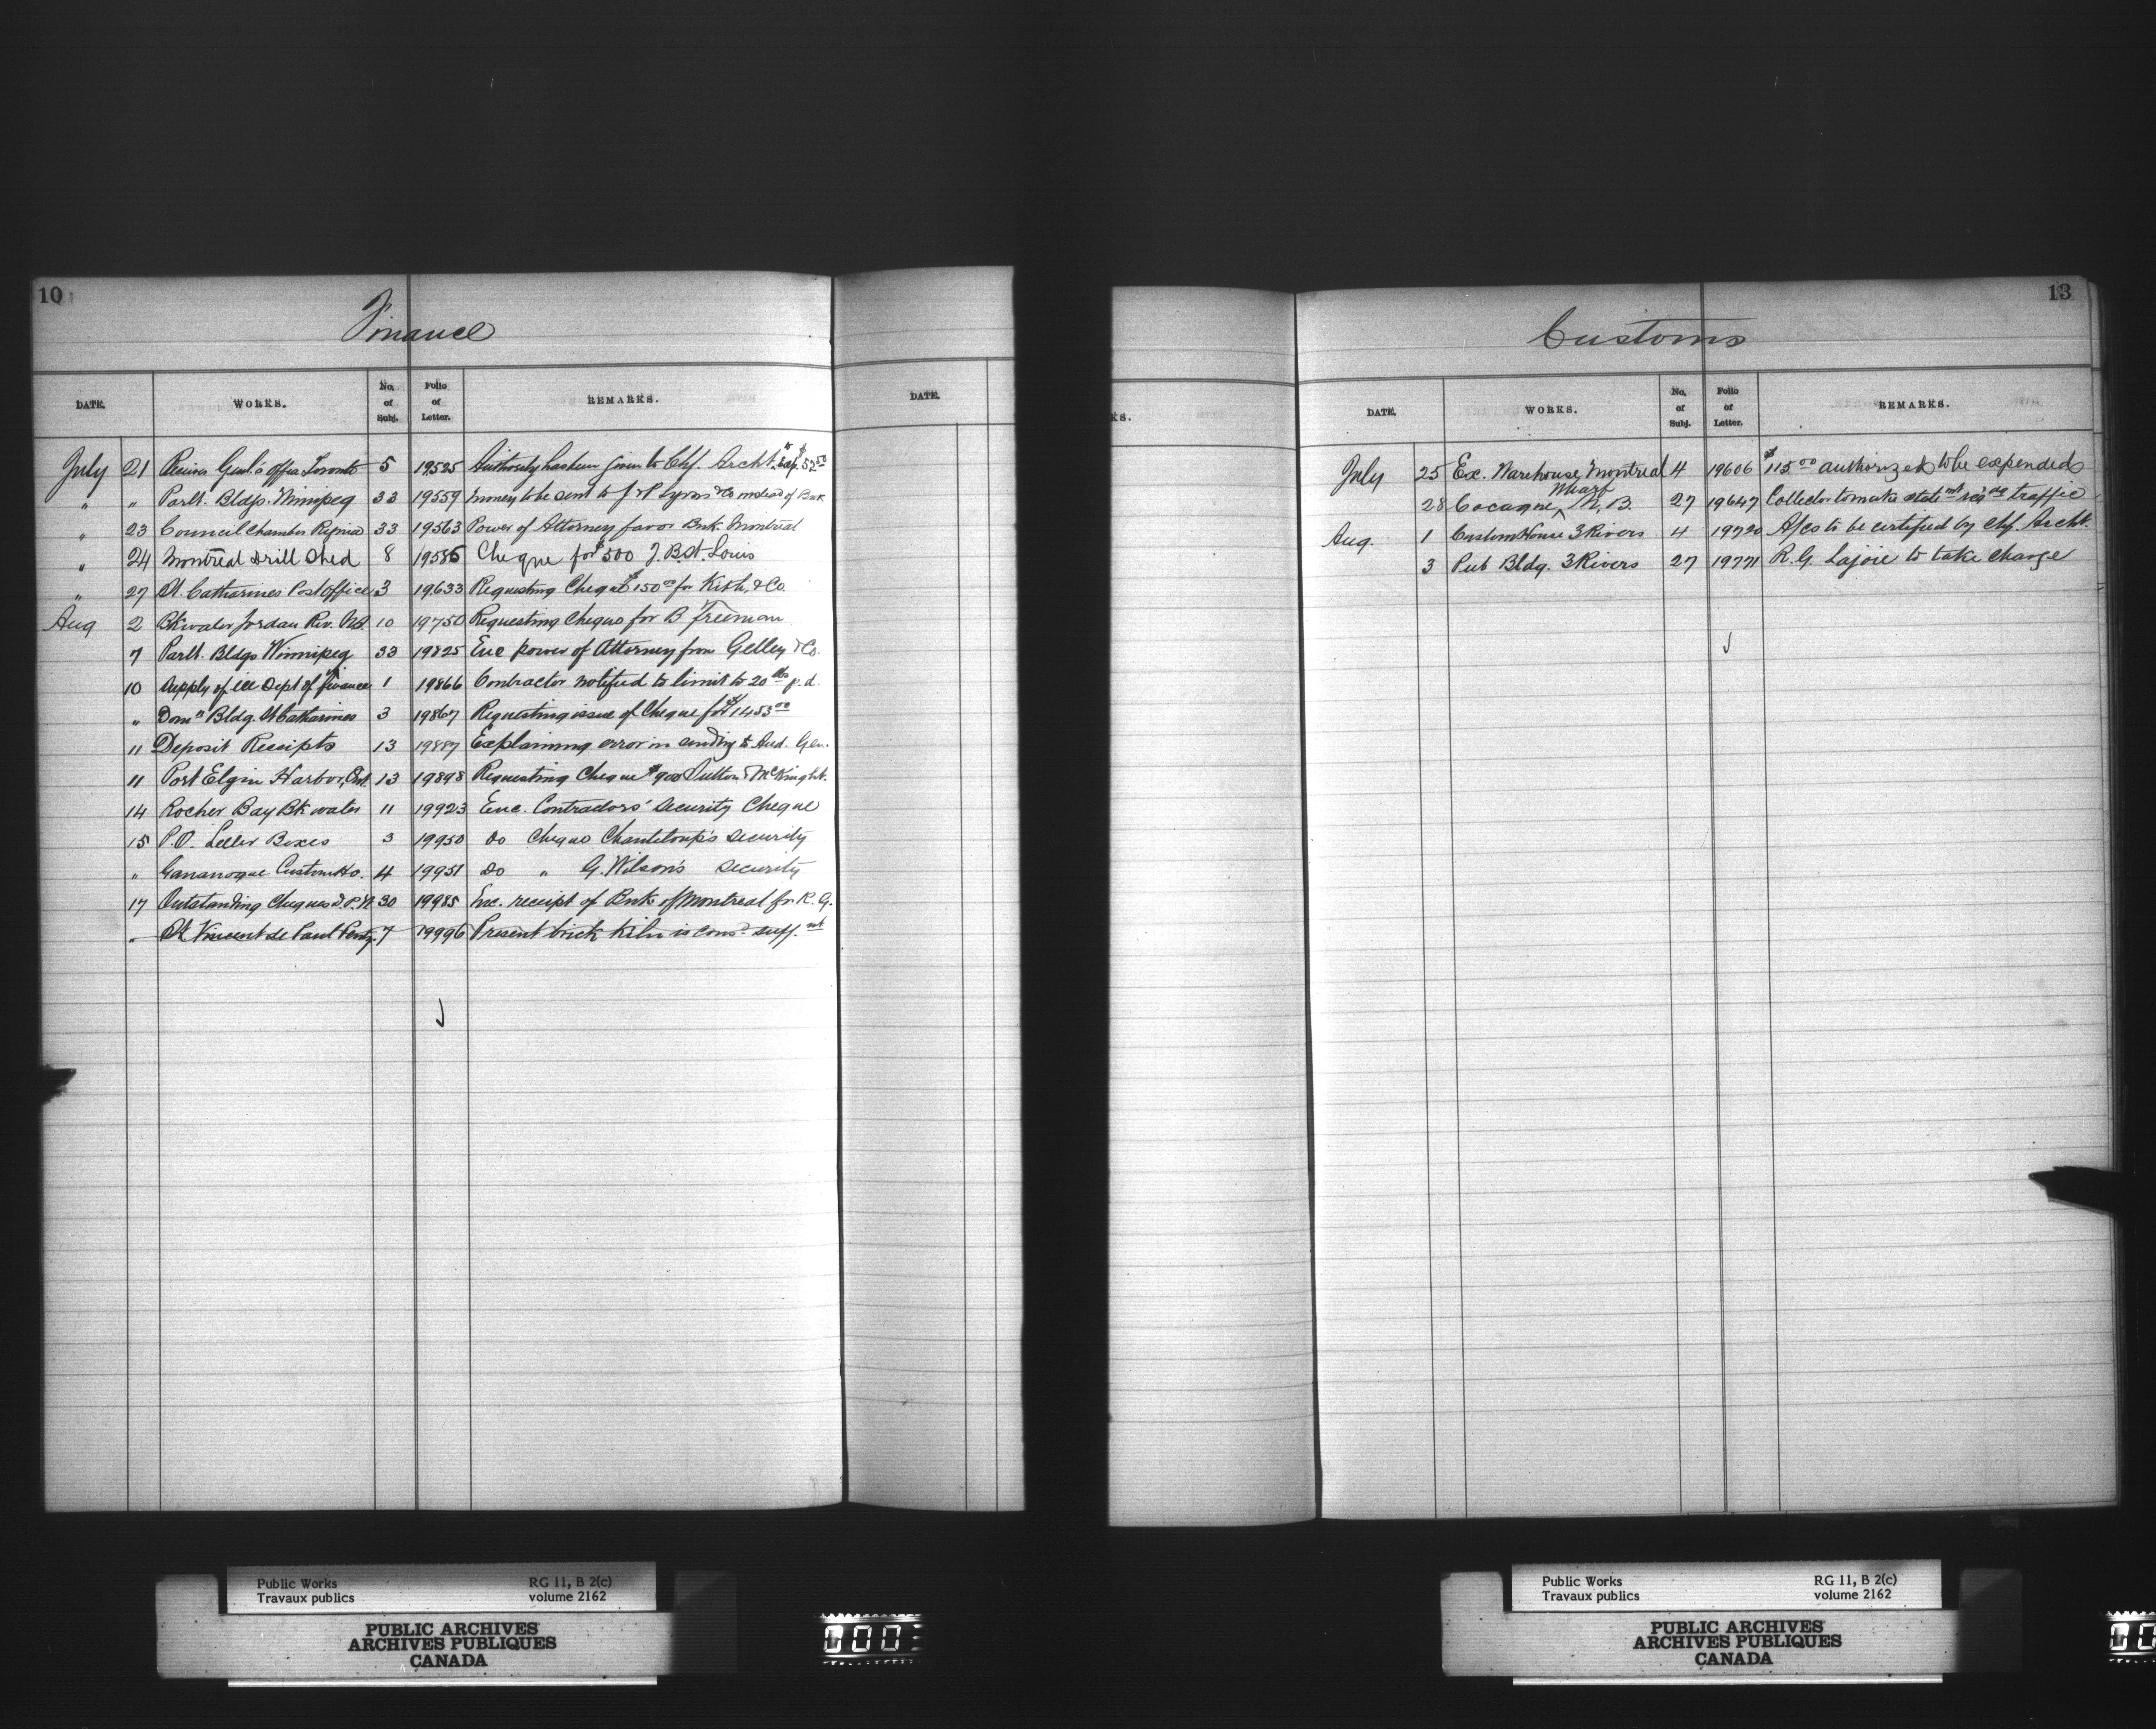 10
Finance
DATE. WORKS. No. of Subj. Folio of Letter. REMARKS. DATE.
July 21 Receiver Genl.'s Office Toronto 5 19525 Authority has been given to Chf. Archt. to exp. $52.50
" " Parlt. Bldgs. Winnipeg 33 19559 Money to be sent to & Co instead of Bank
" 23 Council Chamber Regina 33 19563 Power of Attorney favor Bnk. Montreal
" 24 Montreal Drill Shed 8 19585 Cheque for $500 J. B. St. Louis
" 27 St. Catharines Post Office 3 19633 Requesting Cheque $150 00 for & Co.
Aug 2 Bkwater Jordan Riv. N.S. 10 19750 Requesting Cheque for B Freeman
7 Parlt. Bldgs Winnipeg 33 19825 Enc power of Attorney from Gelley & Co.
10 Supply of ice Dept of Finance 1 19866 Contractor notified to limit to 20 lbs p. d.
" Domn Bldg. St Catharines 3 19867 Requesting issue of Cheque for $1453 00
11 Deposit Receipts 13 19887 Explaining error in sending to Aud. Gen.
11 Port Elgin Harbor, Ont. 13 19898 Requesting Cheque $900 Sutton & McKnight.
14 Rocher Bay Bkwater 11 19923 Enc. Contractors' Security Cheque
15 P.O. Letter Boxes 3 19950 do Cheque Chanteloup's security
" Gananoque Custom Ho. 4 19951 do " G. Wilson's security
17 Outstanding Cheques D.P.W. 30 19985 Enc. receipt of Bnk of Montreal for R. G.
" St Vincent de Paul Penty. 7 19996 Present brick kiln is cons.d suff.nt
13
Customs
KS. DATE. WORKS. No. of Subj. Folio of Letter. REMARKS.
July 25 Ex. Warehouse Montreal 4 19606 $115 00 authorized to be expended
28 Cocagne Wharf N. B. 27 19647 Collector to make statemt reg traffic
Aug. 1 Custom House 3 Rivers 4 19720 A/cs to be certified by Chf. Archt.
3 Pub Bldg. 3 Rivers 27 19771 R. G. Lajoie to take charge
Public Works RG 11, B 2(c)
Travaux publics volume 2162
PUBLIC ARCHIVES
ARCHIVES PUBLIQUES
CANADA
000
Public Works RG 11, B 2(c)
Travaux publics volume 2162
PUBLIC ARCHIVES
ARCHIVES PUBLIQUES
CANADA
00